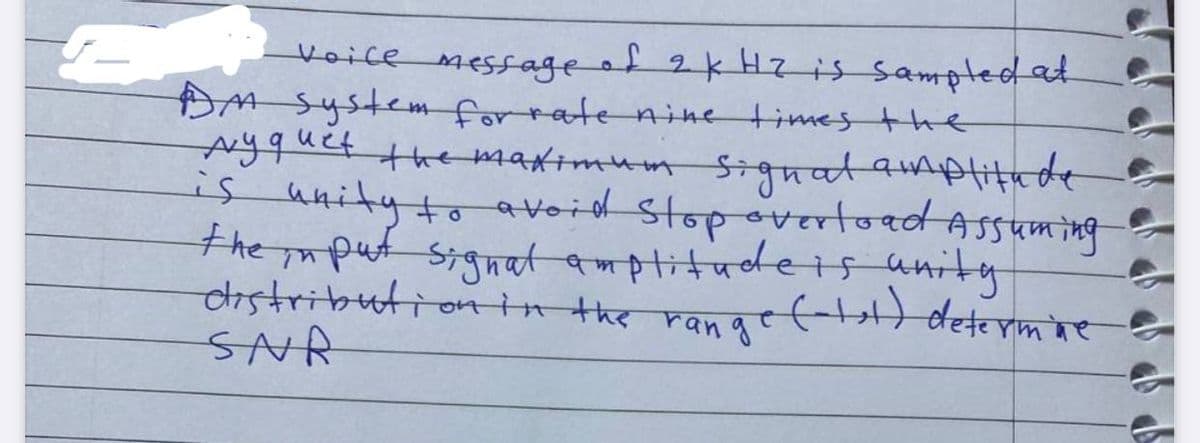 Voice message of 2kHz is sampled at
DM system for rate nine times the
Nyquet the maximum signal amplitude
is unity to avoid slop overload Assuming
the input signal amplitude is unity
distribution in the range (-1,1) determine
SNR